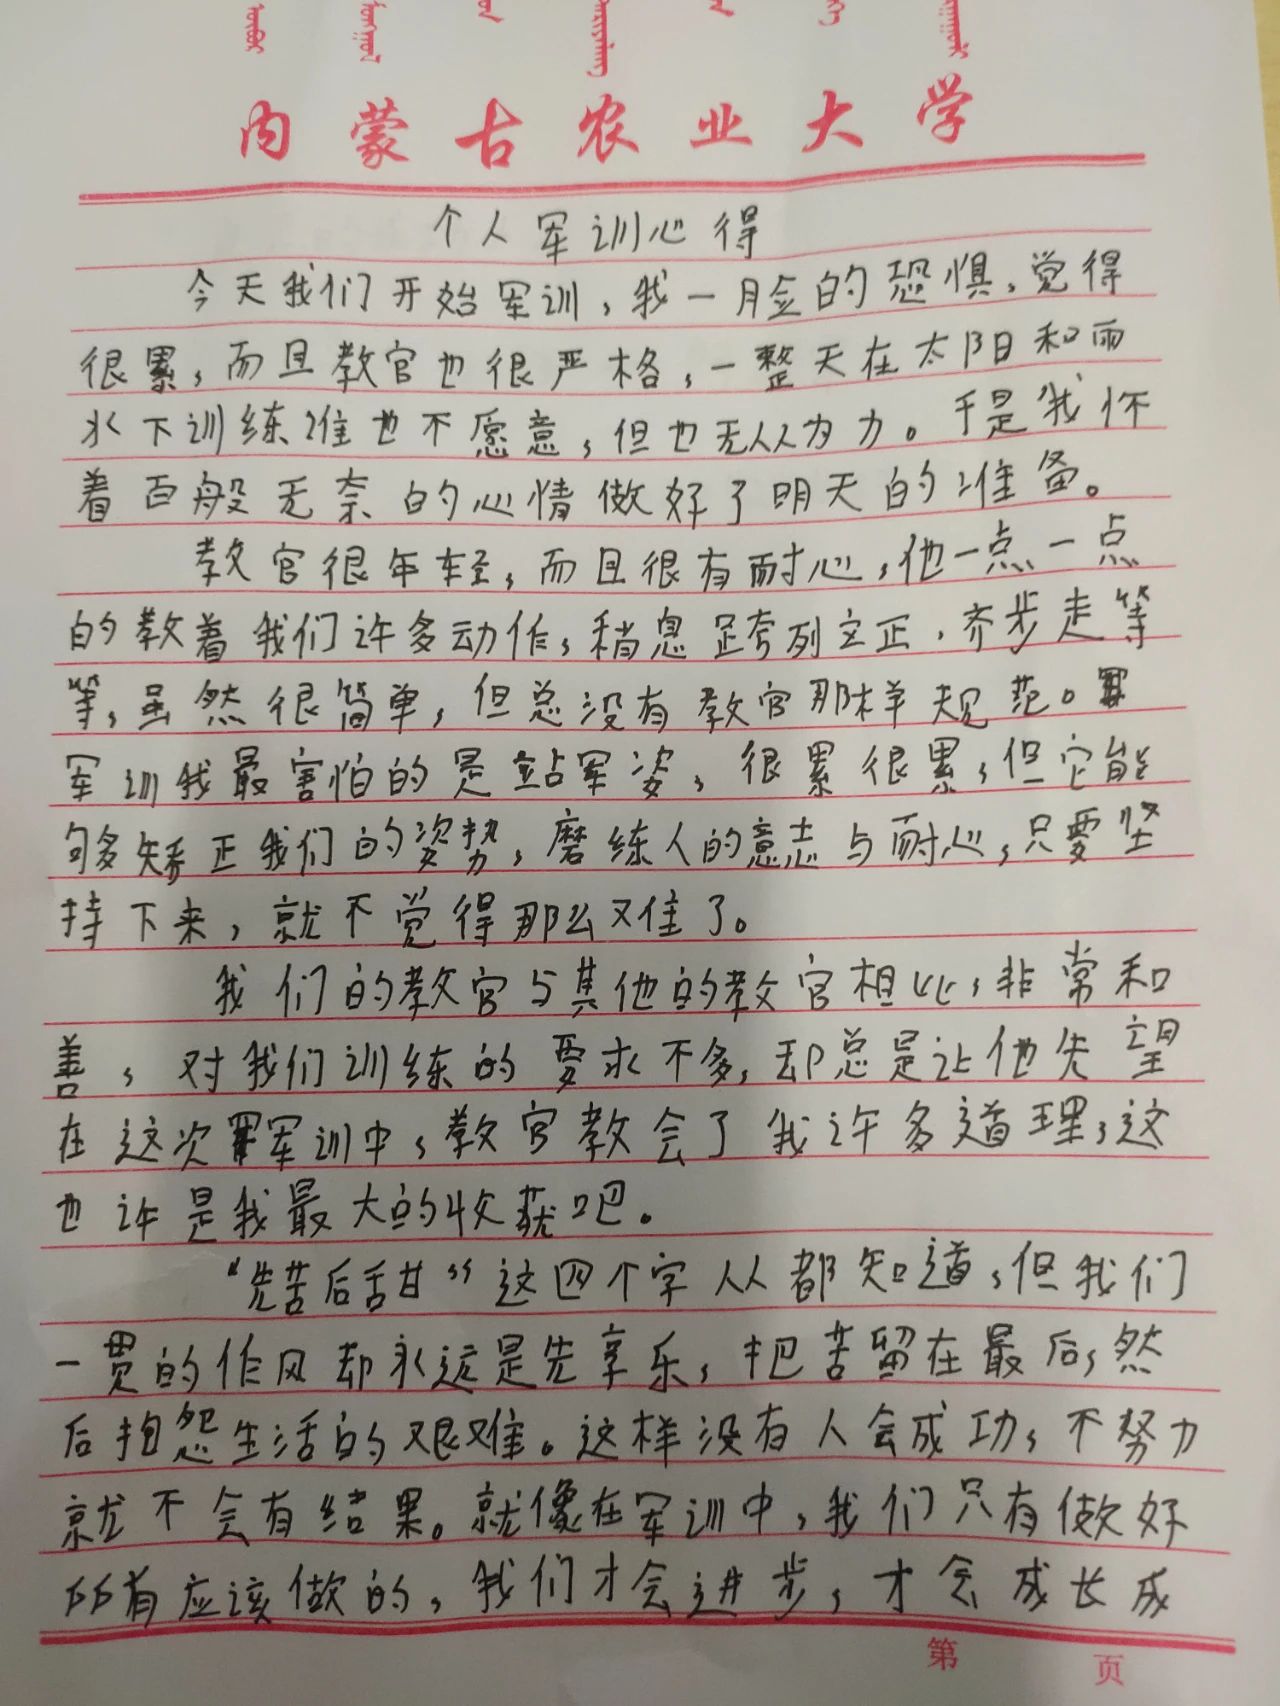 内蒙古农业大学
个人军训心得
今天我们开始军训,我一脸的恐惧,觉得
很累,而且教官也很严格,一整天在太阳和雨
水下训练谁也不愿意,但也无从为力。于是我怀
着百般无奈的心情做好了明天的准备。
教官很年轻,而且很有耐心,他一点一点
的教着我们许多动作,稍息跨列立正,齐步走等
等,虽然很简单,但总没有教官那样规范。
军训我最害怕的是站军姿,很累很累,但它能
够矫正我们的姿势,磨练人的意志与耐心,只要坚
持下来,就不觉得那么难了。
我们的教官与其他的教官相比,非常和
善,对我们训练的要求不多,却总是让他失望
在这次军训中,教官教会了我许多道理,这
也许是我最大的收获吧。
“先苦后甘”这四个字人人都知道,但我们
一贯的作风却永远是先享乐,把苦留在最后,然
后抱怨生活的艰难。这样没有人会成功,不努力
就不会有结果。就像在军训中,我们只有做好
所有应该做的,我们才会进步,才会成长成
第 页